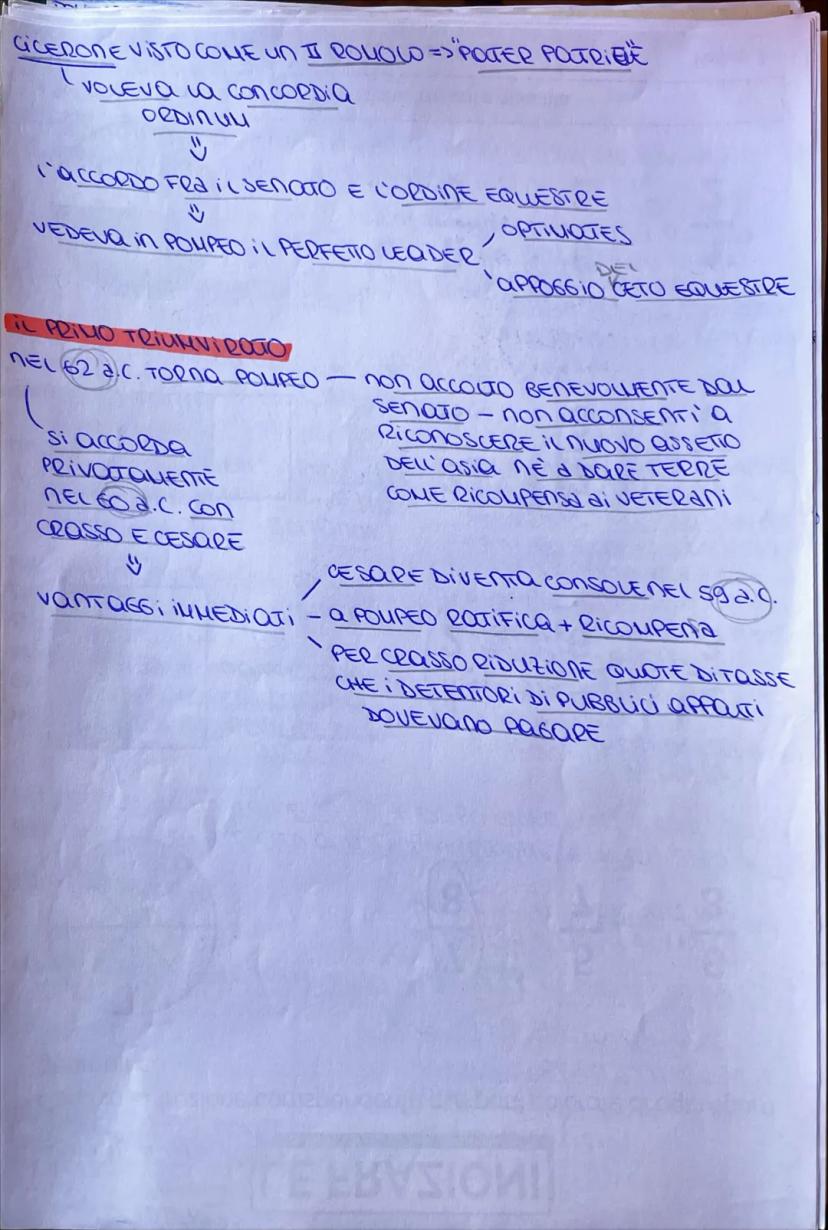 CICERONE VISTO COME UN II ROMOLO => "PATER PATRIAE"
VOLEVA LA CONCORDIA
ORDINUM
L'ACCORDO FRA IL SENATO E L'ORDINE EQUESTRE
VEDEVA IN POMPEO IL PERFETTO LEADER
OPTIMATES
APPOGGIO DEL CETO EQUESTRE
IL PRIMO TRIUMVIRATO
NEL 62 a.C. TORNA POMPEO — NON ACCOLTO BENEVOLMENTE DAL
SENATO - NON ACCONSENTÌ A
RICONOSCERE IL NUOVO ASSETTO
DELL'ASIA NÉ A DARE TERRE
COME RICOMPENSA AI VETERANI
SI ACCORDA
PRIVATAMENTE
NEL 60 a.C. CON
CRASSO E CESARE
VANTAGGI IMMEDIATI
CESARE DIVENTA CONSOLE NEL 59 a.C.
- A POMPEO RATIFICA + RICOMPENSA
PER CRASSO RIDUZIONE QUOTE DI TASSE
CHE I DETENTORI DI PUBBLICI APPALTI
DOVEVANO PAGARE
LE FRAZIONI